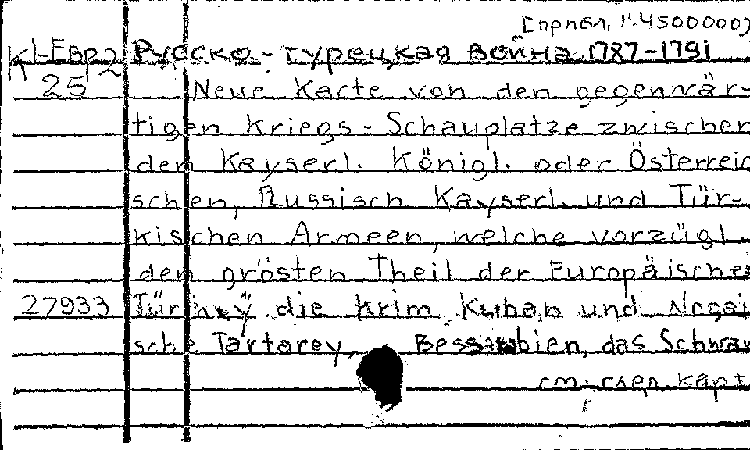 [прибл. 1:4500000]
К 1-Евр 2 Русско-турецкая война 1787-1791
25 Neue Karte von den gegenwär-
tigen Kriegs-Schauplatze zwischen
den Kayserl. Königl. oder Österreic
schen, Russisch Kayserl. und Tür-
kischen Armeen, welche vorzügl.
den grösten Theil der Europäische
27933 Türkey, die Krim, Kuban und Nogai
sche Tartarey, Bessarabien, das Schwar
см. след. карт